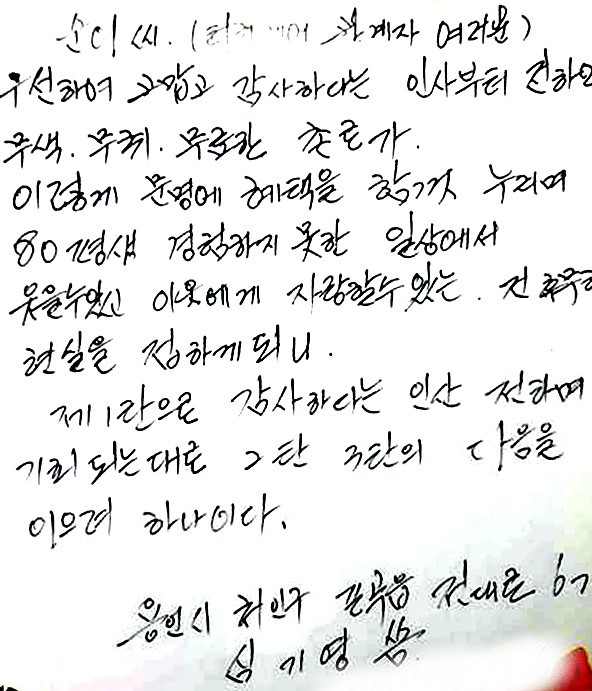 순이 씨. ( 관계자 여러분 )
우선하여 고맙고 감사하다는 인사부터 전하며
무색. 무취. 무료한 촌로가.
이렇게 문명에 혜택을 힘껏 누리며
80평생 경험하지 못한 일상에서
웃을수있고 이웃에게 자랑할수 있는. 전후무
현실을 접하게 되니.
제1탄으로 감사하다는 인산 전하며
기회 되는대로 2탄 3탄의 다음을
이으려 하나이다.
용인시 처인구 포곡읍 전대로 67
심 기 영 씀